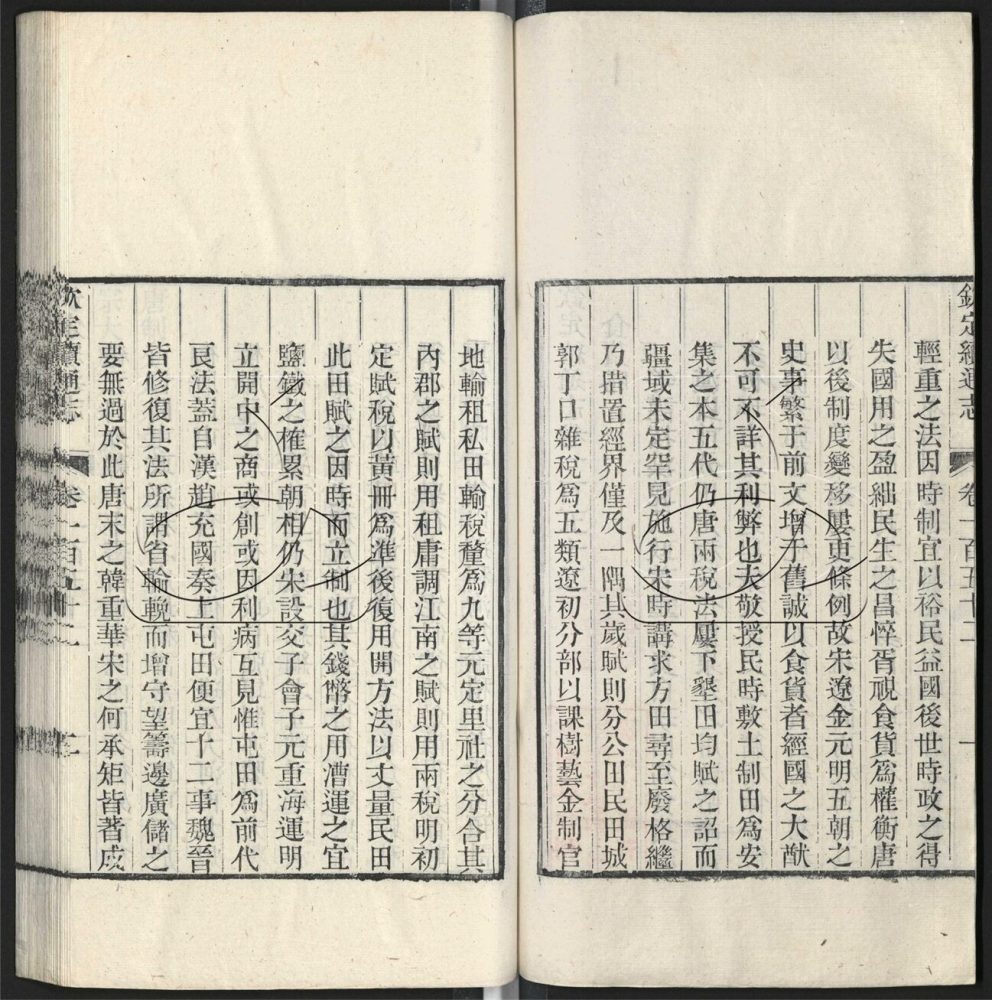 欽定續通志 卷一百五十二 一
輕重之法因時制宜以裕民益國後世時政之得
失國用之盈絀民生之昌悴胥視食貨爲權衡唐
以後制度變移屢更條例故宋遼金元明五朝之
史事繁于前文增于舊誠以食貨者經國之大猷
不可不詳其利弊也夫敬授民時敷土制田爲安
集之本五代仍唐兩稅法屢下墾田均賦之詔而
疆域未定罕見施行宋時講求方田尋至廢格繼
乃措置經界僅及一隅其歲賦則分公田民田城
郭丁口雜稅爲五類遼初分部以課樹藝金制官
地輸租私田輸稅釐爲九等元定里社之分合其
內郡之賦則用租庸調江南之賦則用兩稅明初
定賦稅以黃冊爲準後復用開方法以丈量民田
此田賦之因時而立制也其錢幣之用漕運之宜
鹽鐵之榷累朝相仍宋設交子會子元重海運明
立開中之商或創或因利病互見惟屯田爲前代
良法蓋自漢趙充國奏上屯田便宜十二事魏晉
皆修復其法所謂省輸輓而增守望籌邊廣儲之
要無過於此唐末之韓重華宋之何承矩皆著成
欽定續通志 卷一百五十二